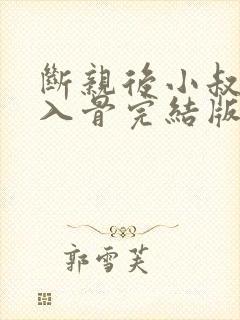 斷親後小叔
入骨完結版
郭雪芙